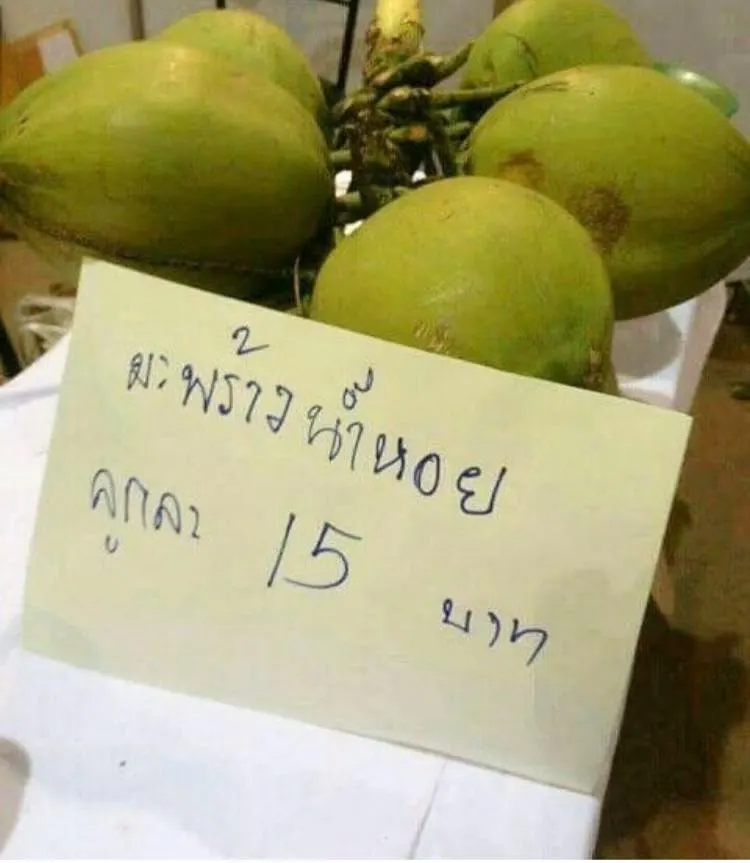 มะพร้าวน้ำหอย
ลูกละ 15 บาท